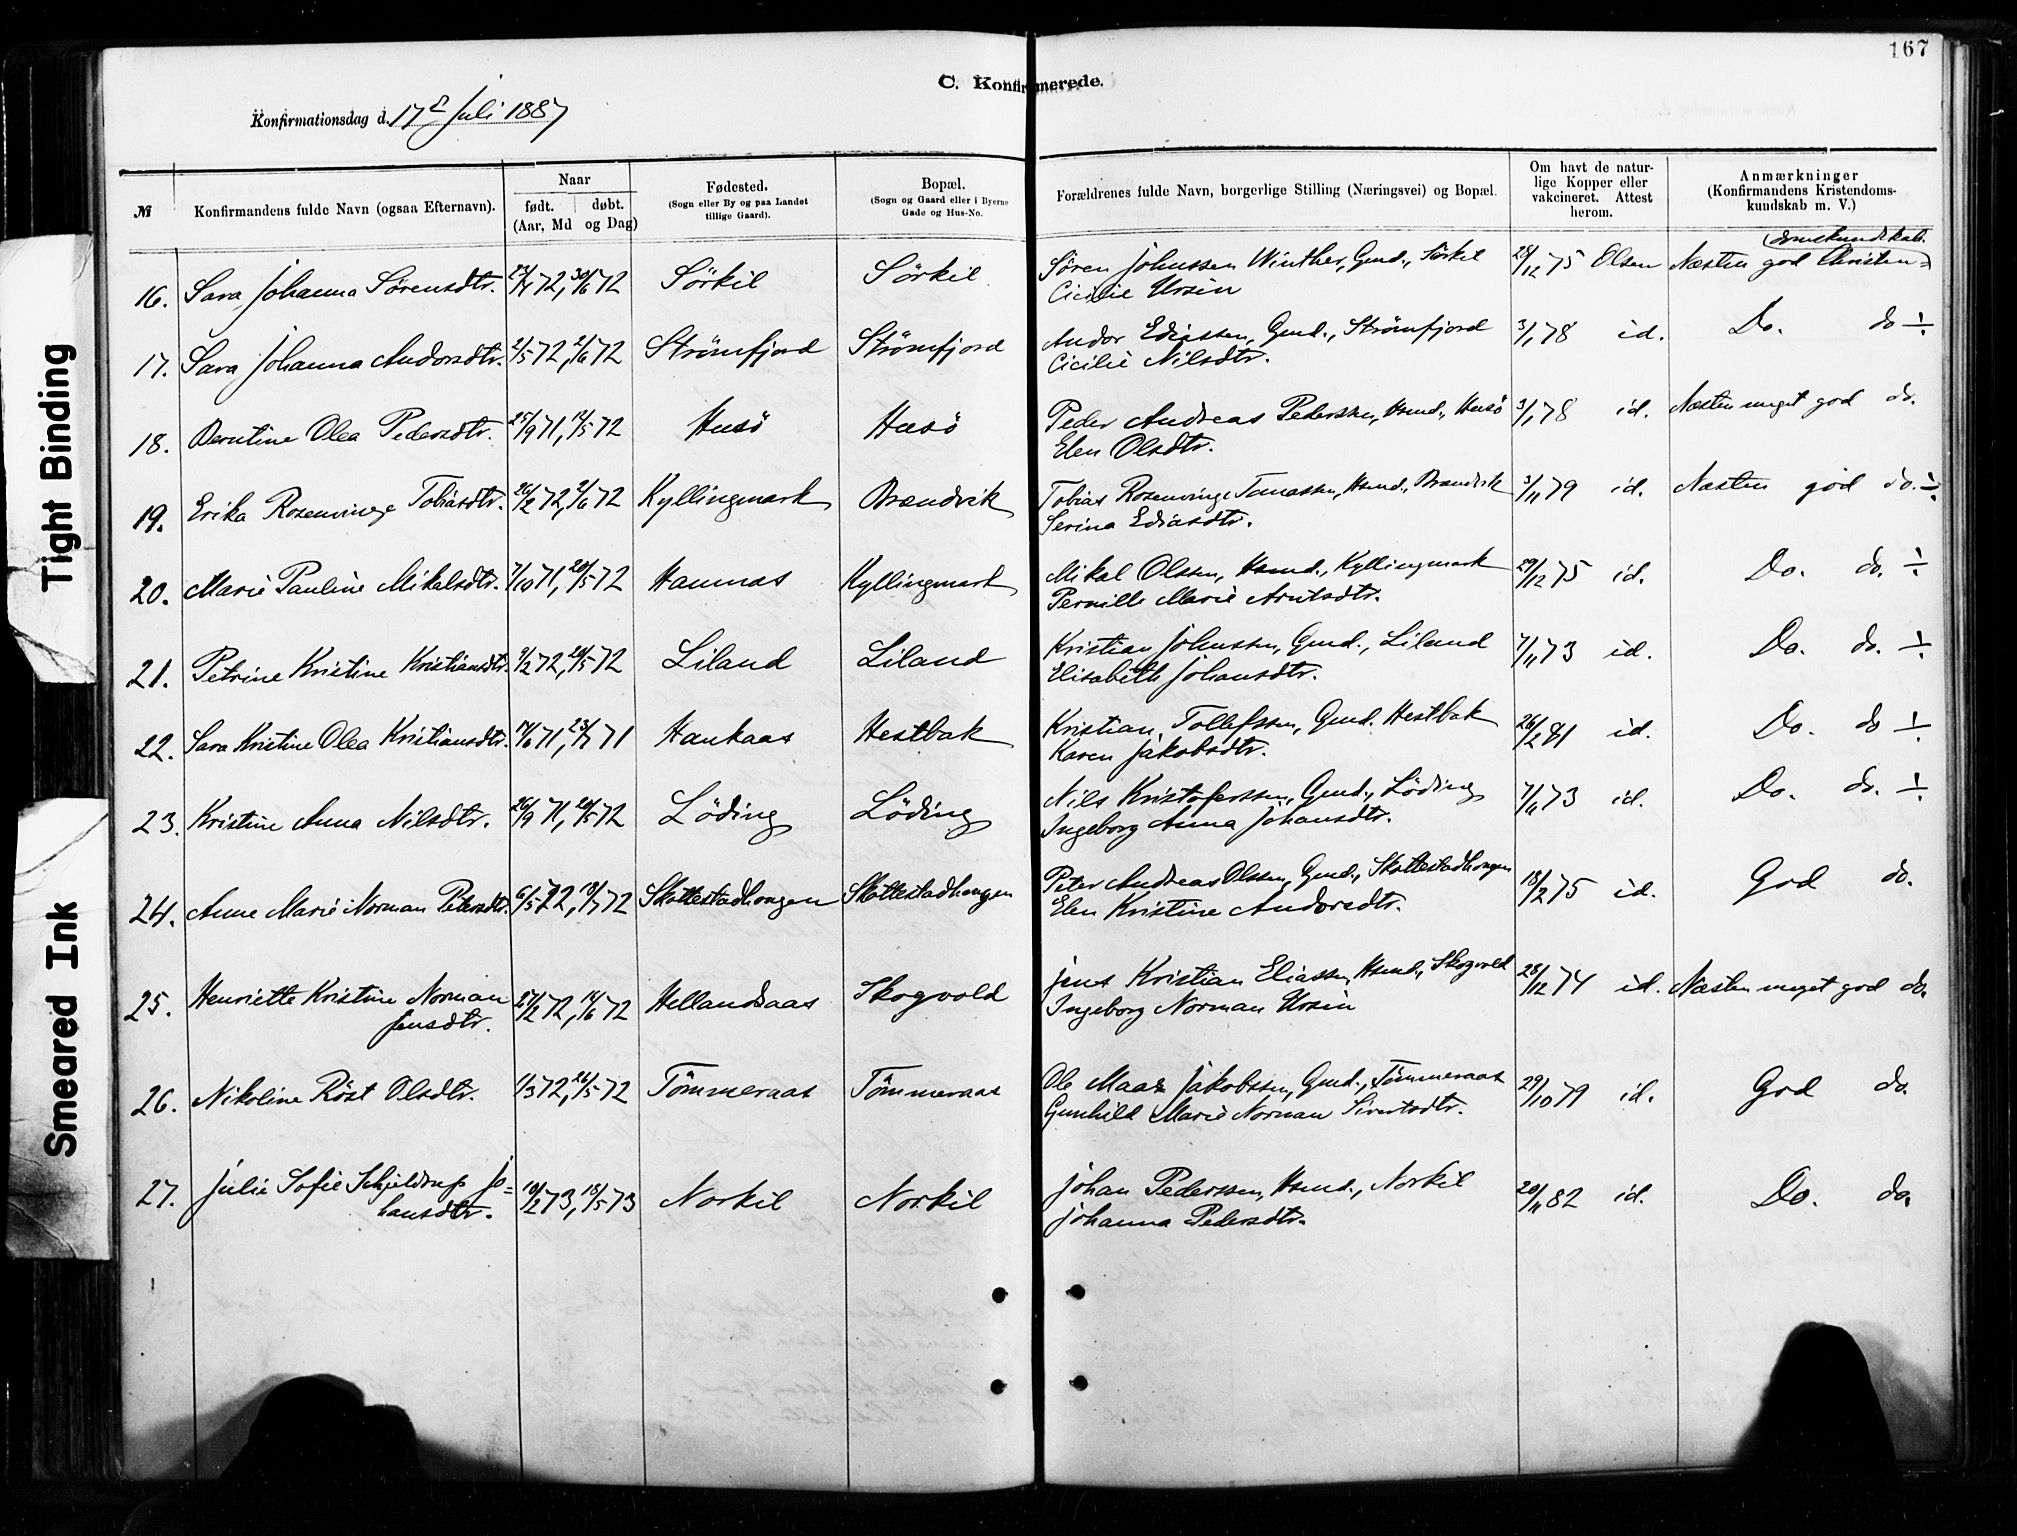 167
C. Konfirmerede.
Konfirmationsdag d. 17de Juli 1887
№
Konfirmandens fulde Navn (ogsaa Efternavn).
Naar
født. døbt.
(Aar, Md og Dag)
Fødested.
(Sogn eller By og paa Landet
tillige Gaard).
Bopæl.
(Sogn og Gaard eller i Byerne
Gade og Hus-No.
Forældrenes fulde Navn, borgerlige Stilling (Næringsvei) og Bopæl.
Om havt de natur-
lige Kopper eller
vakcineret. Attest
herom.
Anmærkninger
(Konfirmandens Kristendoms-
kundskab m. V.)
16. Sara Johanna Sørensdtr. 72, 30/6 72 Sörkil Sörkil Søren Johnssen Winther, Gmd., Sörkil 28/12 75 Olsen Næsten god Christen=
domskundskab.
Cicilie Ursin
17. Sara Johanna Andorsdtr. 2/5 72, 2/6 72 Strömfjord Strömfjord Andor Ediassen, Gmd., Strömfjord 3/1 78 id. Do. do ÷
Cicilie Nilsdtr.
18. Berntine Olea Pedersdtr. 25/9 71, 72 Husö Husö Peder Andreas Pederssen, Hsmd., Husö 3/1 78 id. Næsten meget god do.
Elen Olsdtr.
19. Erika Rosenvinge Tobiasdtr. 26/2 72, 2/6 72 Kyllingmark Brændvik Tobias Rosenvinge Tomassen, Hsmd., Brændvik 3/11 79 id. Næsten god do. ÷
Serina Ediasdtr.
20. Marie Pauline Mikalsdtr. 7/10 71, 20/5 72 Hamnas Kyllingmark Mikal Olssen, Hsmd., Kyllingmark 29/12 75 id. Do. do. ÷
Pernille Marie Arntsdtr.
21. Petrine Kristine Kristiansdtr. 72, 20/5 72 Liland Liland Kristian Johnssen, Gmd., Liland 7/11 73 id. Do. do. ÷
Elisabeth Johansdtr.
22. Sara Kristine Olea Kristiansdtr. 71, 23/7 71 Haukaas Hestbak Kristian Tollefssen, Gmd. Hestbak 26/2 81 id. Do. do ÷
Karen Jakobsdtr.
23. Kristine Anna Nilsdtr. 26/9 71, 20/5 72 Löding Löding Nils Kristoferssen, Gmd., Löding 7/11 73 id. Do. do. ÷
Ingeborg Anna Johansdtr.
24. Anne Marie Norman Petersdtr. 6/5 72, 72 Skottestadhougen Skottestadhougen Peter Andreas Olssen, Gmd., Skottestadhougen 18/2 75 id. God do.
Elen Kristine Andorsdtr.
25. Henriette Kristine Norman 27/2 72, 14/6 72 Hellandsaas Skogvold Jens Kristian Eliassen, Hsmd., Skogvold 28/12 74 id. Næsten meget god do.
Jensdtr. Ingeborg Norman Ursin
26. Nikoline Röst Olsdtr. 1/3 72, 26/5 72 Tömmeraas Tömmeraas Ole Maas Jakobssen, Gmd., Tömmeraas 29/10 79 id. God do.
Gunhild Marie Norman Sivertsdtr.
27. Julie Sofie Schjeldrup Jo= 10/2 73, 18/5 73 Norkil Norkil Johan Pederssen, Hsmd., Norkil 20/11 82 id. Do. do.
hansdtr. Johanna Pedersdtr.
Tight Binding
Smeared Ink